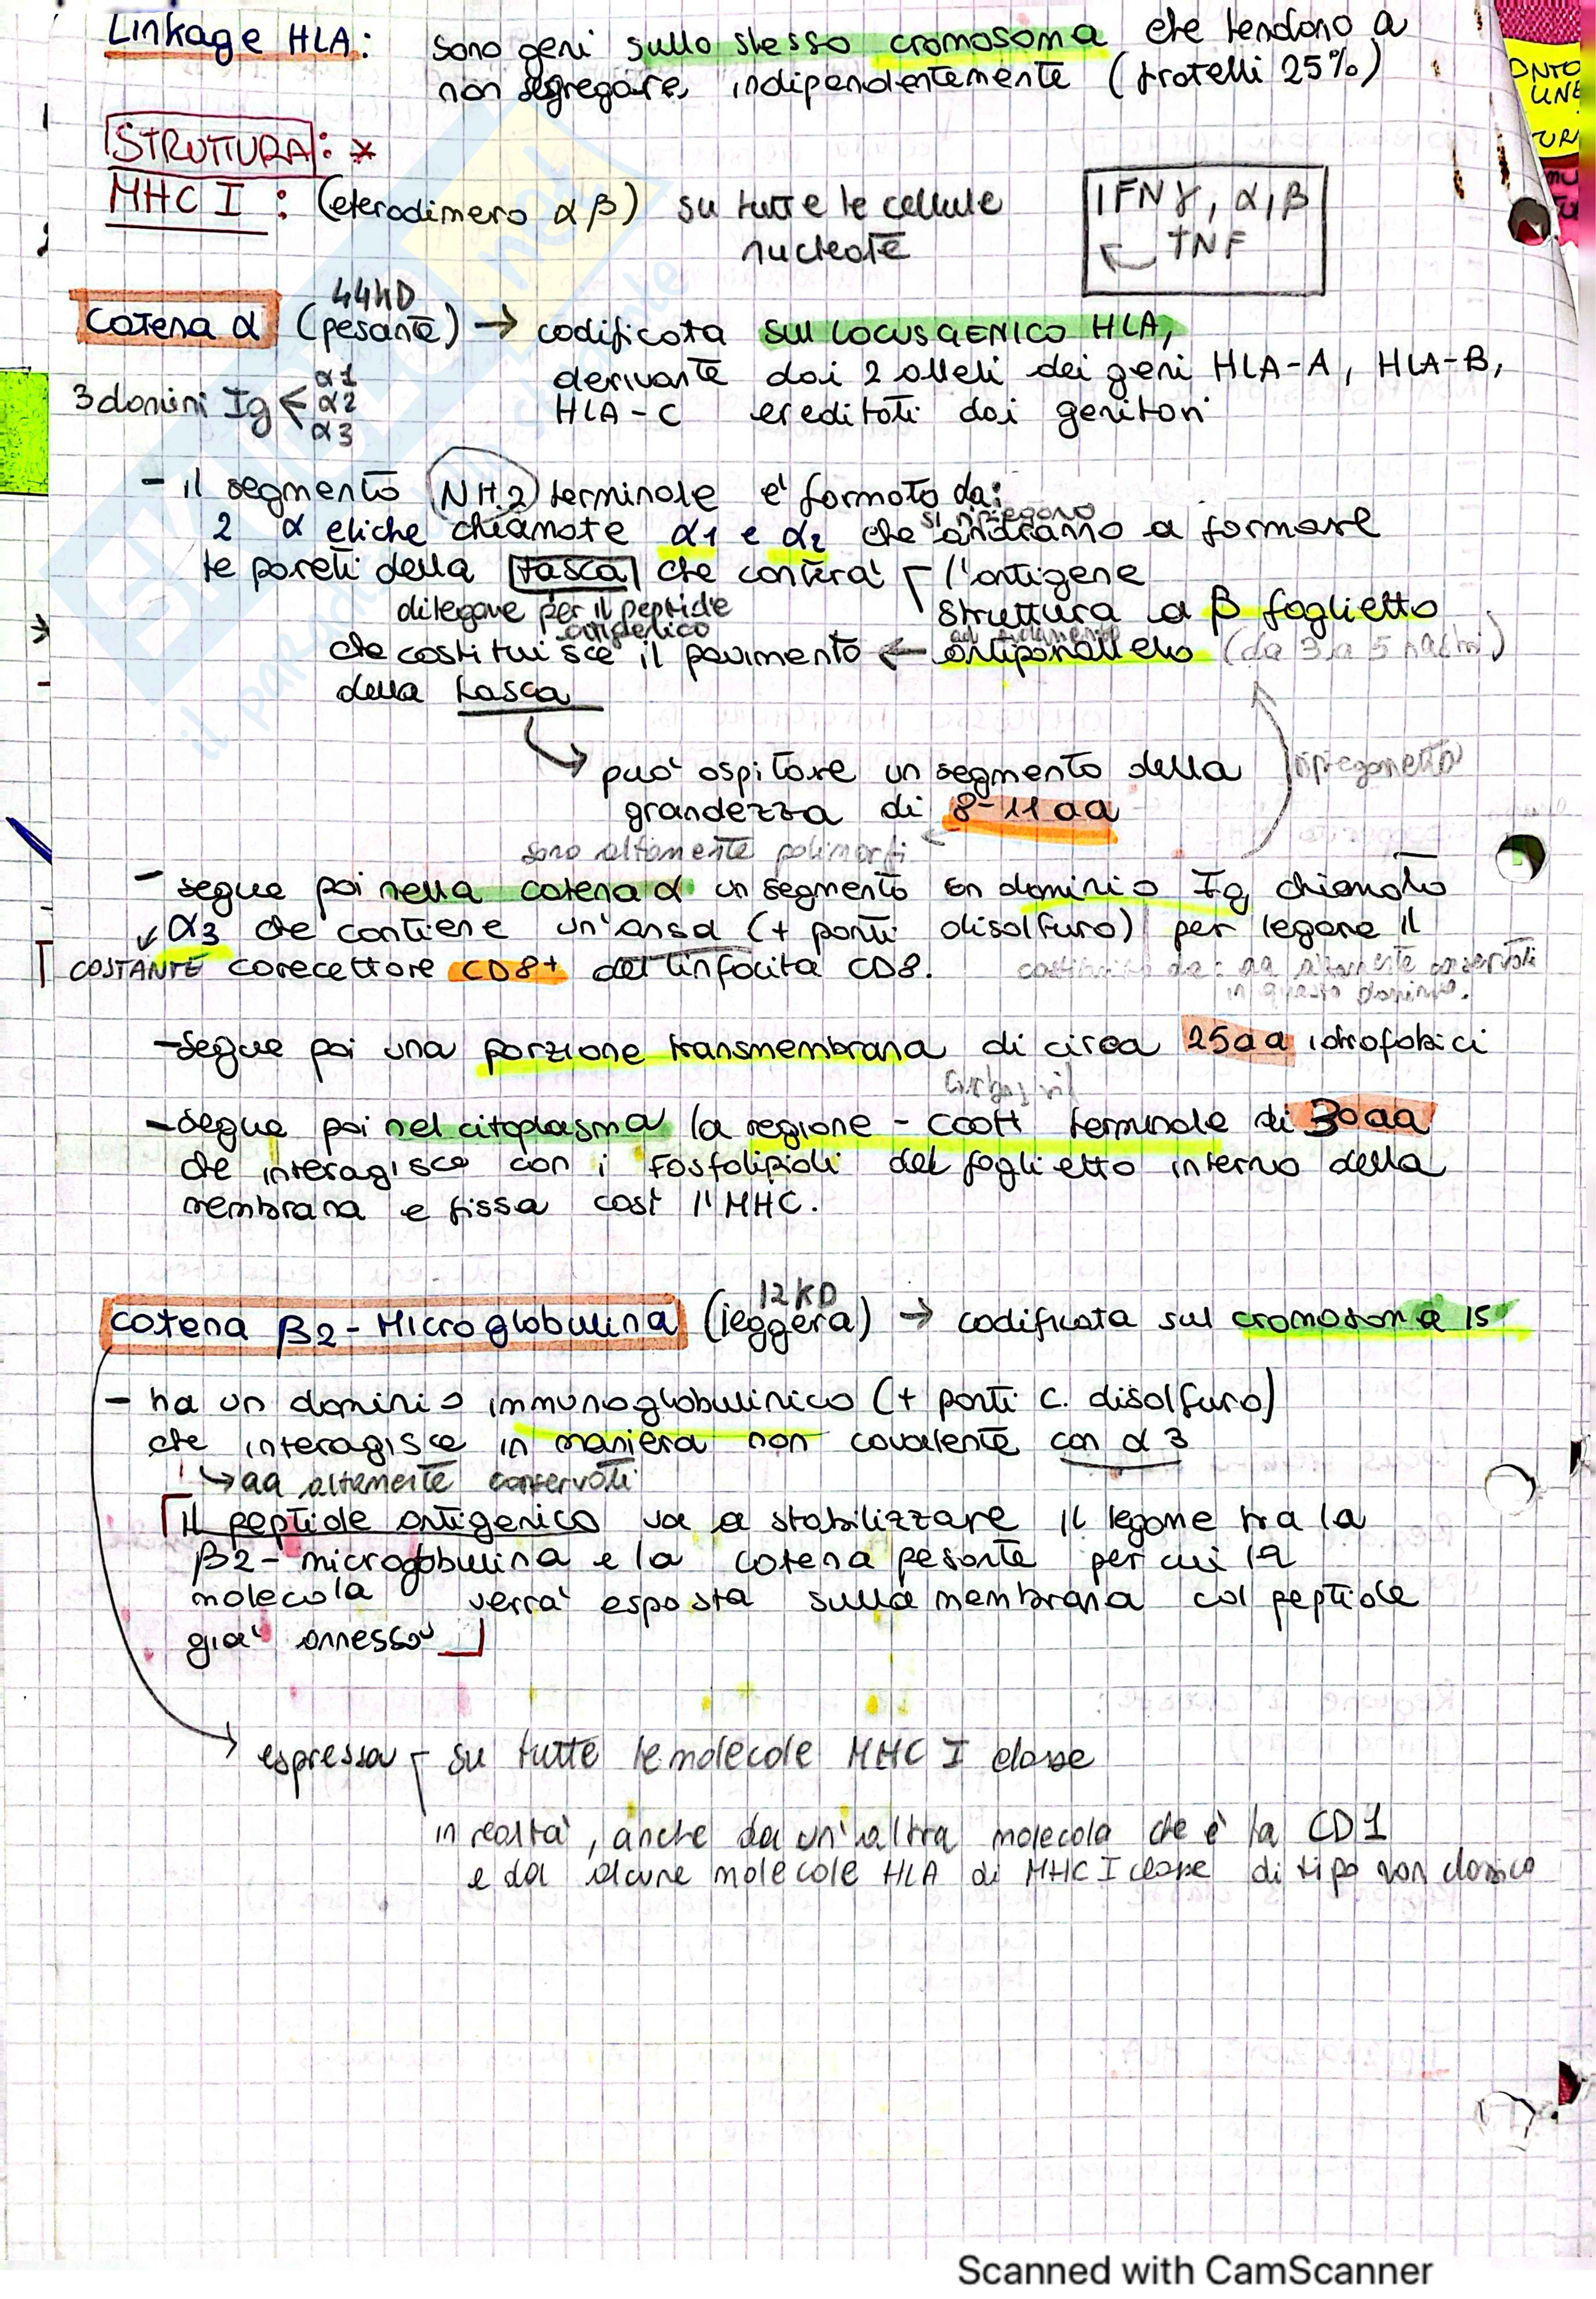 Linkage HLA: sono geni sullo stesso cromosoma che tendono a
non segregare indipendentemente (fratelli 25%)
ONTO
UNE
TUR
STRUTTURA: *
MHC I: (eterodimero α β) su tutte le cellule
nucleate
IFNγ, α, β
TNF
44KD
Catena α (pesante) → codificata sul locus genico HLA,
derivante dai 2 alleli dei geni HLA-A, HLA-B,
HLA-C ereditati dai genitori
3 domini Ig < α1
α2
α3
- il segmento NH2 terminale e' formato da:
2 α eliche chiamate α1 e α2 che si ripiegono andranno a formare
le pareti della tasca che conterra' l'antigene
di legame per il peptide
antigenico
struttura a β foglietto
antiparallelo (da 3 a 5 nastri)
che costituisce il pavimento ←
della tasca
può ospitare un segmento della
grandezza di 8-11 aa
sono altamente polimorfi
- segue poi nella catena α un segmento con dominio Ig chiamato
α3 che contiene un'ansa (+ ponti disolfuro) per legare il
COSTANTE corecettore CD8+ del linfocita CD8.
costituito da: aa altamente conservati
in questo dominio.
- segue poi una porzione transmembrana di circa 25aa idrofobici
- segue poi nel citoplasma la regione - COOH terminale di 30aa
che interagisce con i fosfolipidi del foglietto interno della
membrana e fissa così l'MHC.
12KD
catena β2-Microglobulina (leggera) → codificata sul cromosoma 15
- ha un dominio immunoglobulinico (+ ponti c. disolfuro)
che interagisce in maniera non covalente con α3
↳ aa altamente conservati
Il peptide antigenico va a stabilizzare il legame tra la
β2-microgobulina e la catena pesante per cui la
molecola verra' esposta sulla membrana col peptide
gia' annesso
espressa su tutte le molecole MHC I classe
in realta', anche da un'altra molecola che e' la CD1
e da alcune molecole HLA di MHC I classe di tipo non classico
Scanned with CamScanner